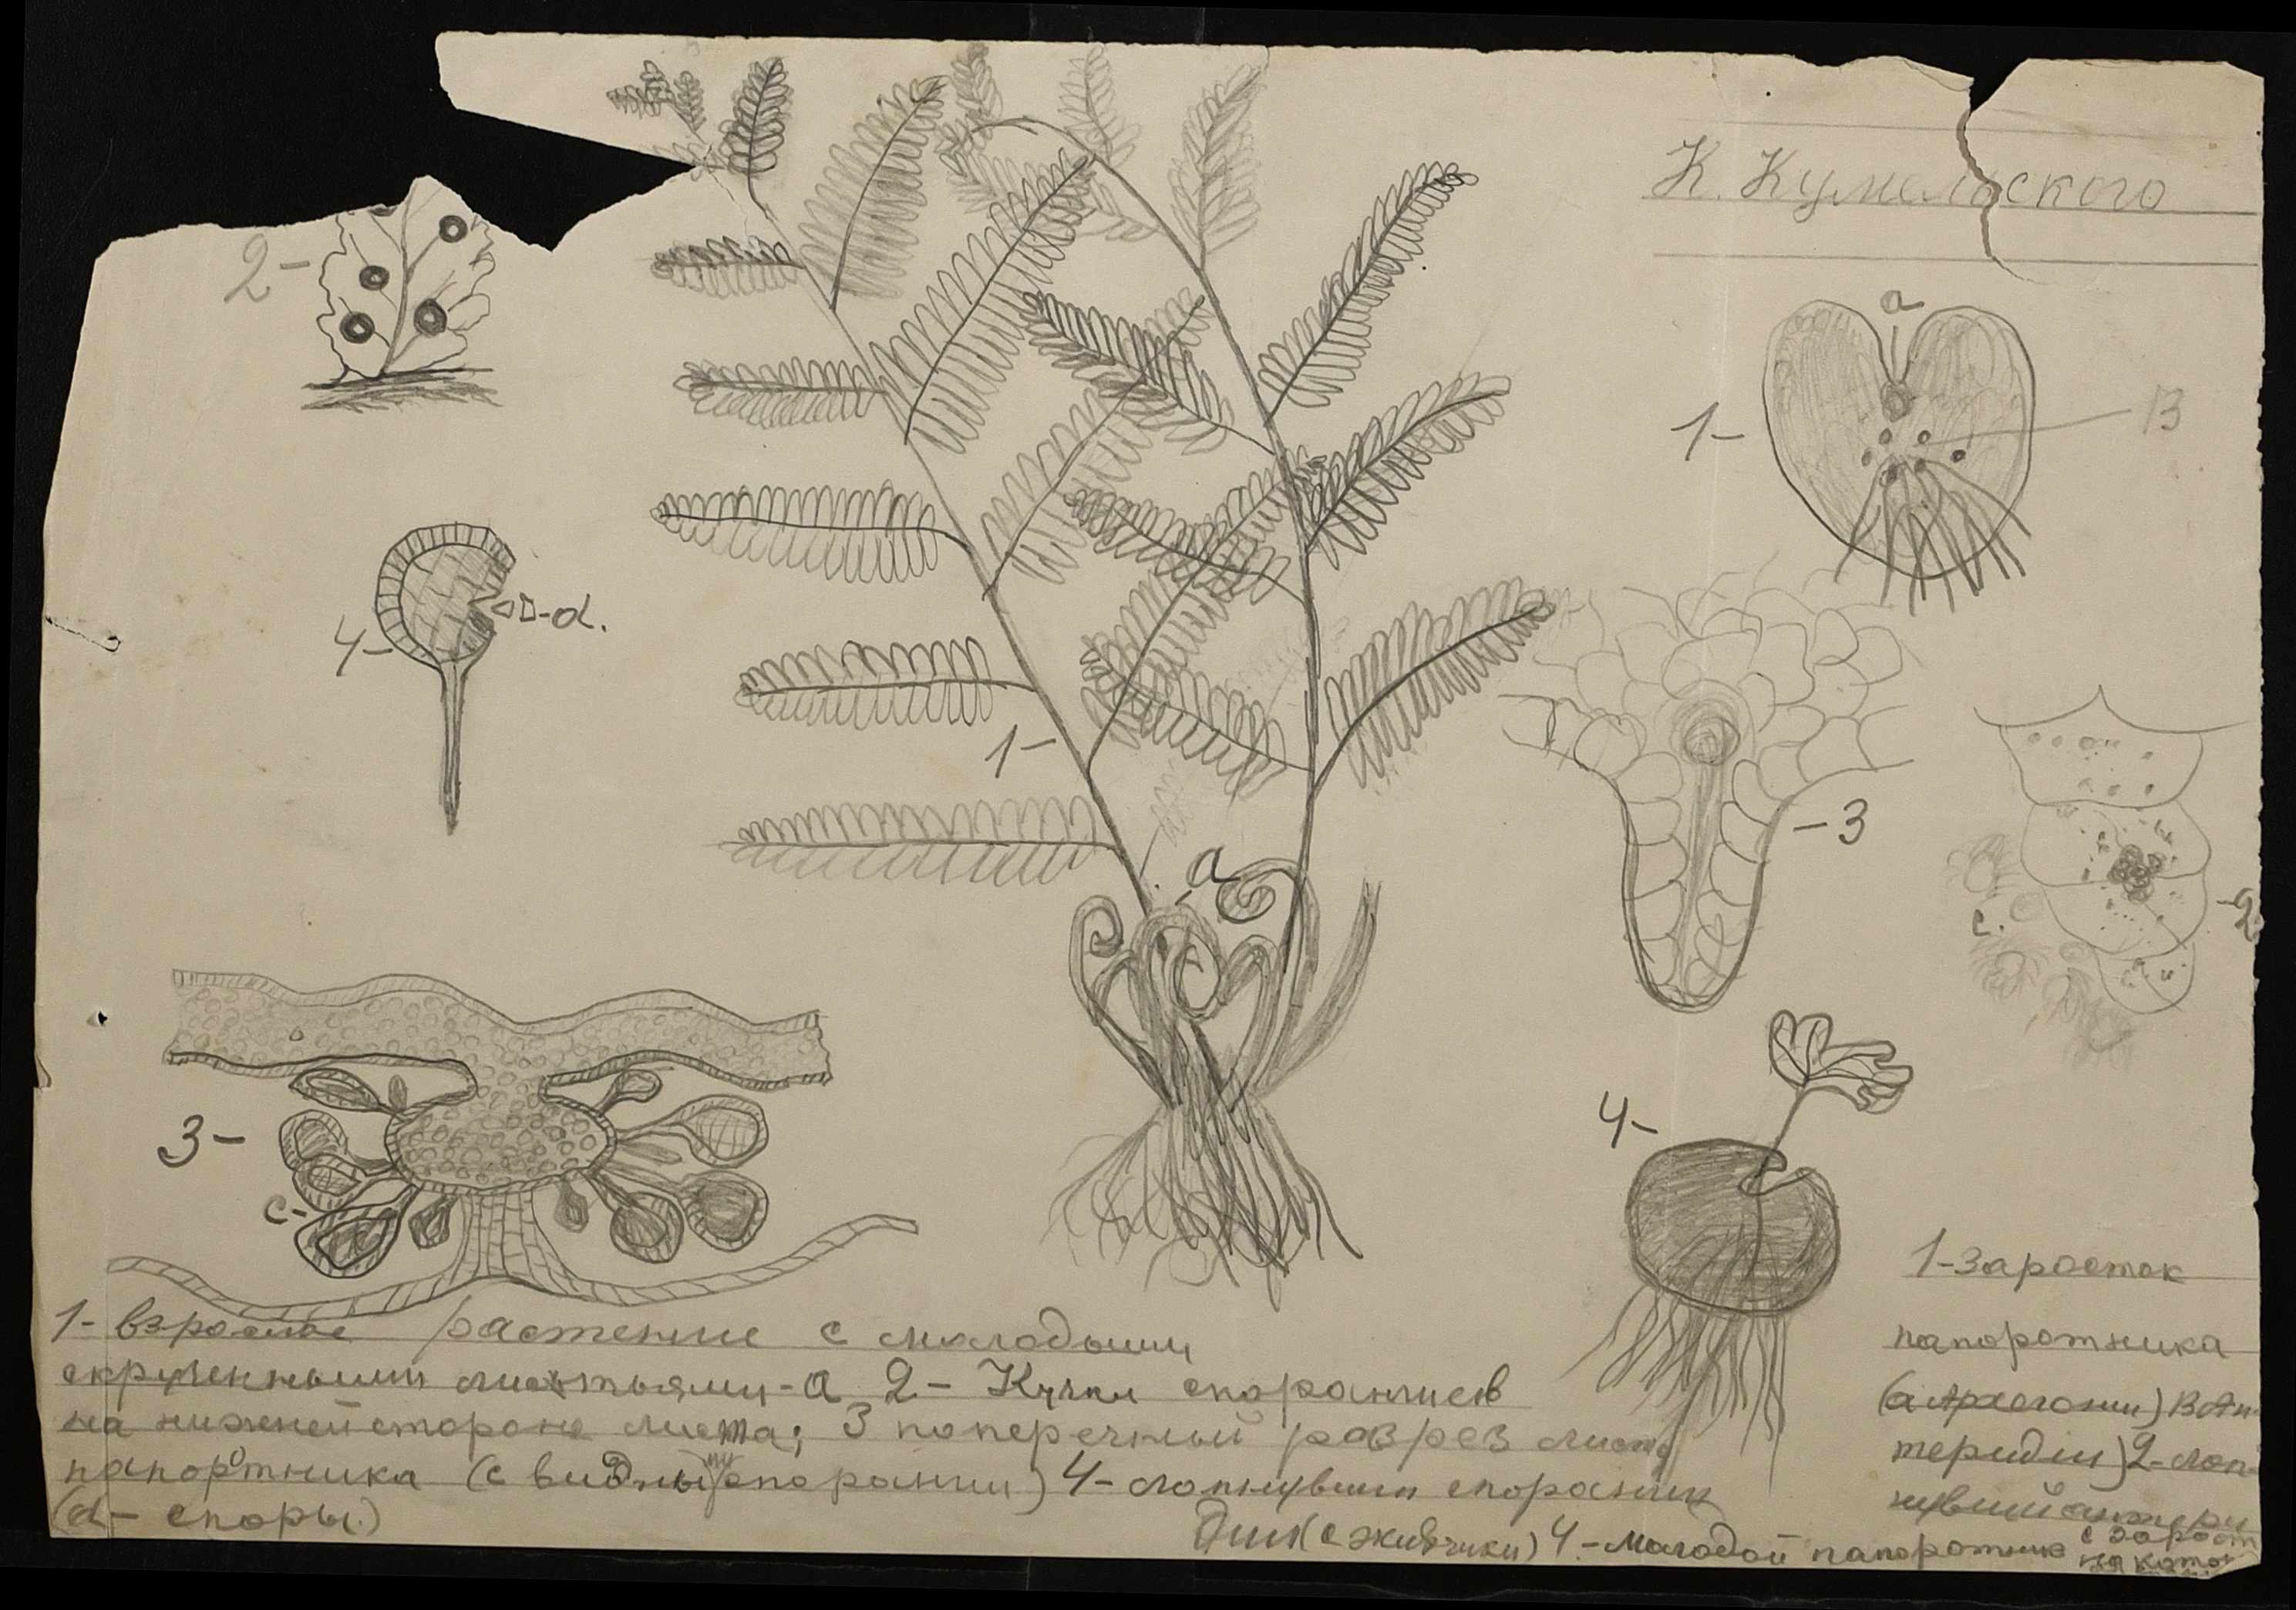 К. Кумельского
2-
a
1-
В
4-
-d.
1-
-3
a
с.
-2
3-
с-
4-
1- взрослое растение с молодыми
скрученными листьями-а 2- Кучки спорангиев
на нижней стороне листа; 3 поперечный разрез листа
папоротника (с видны спорангии) 4- лопнувший спорангий
(d- споры.)
1-заросток
папоротника
(а Архегонии) В Ан-
теридии) 2-лоп-
нувший антери
дии (с живчики) 4-молодой папоротник с зарост